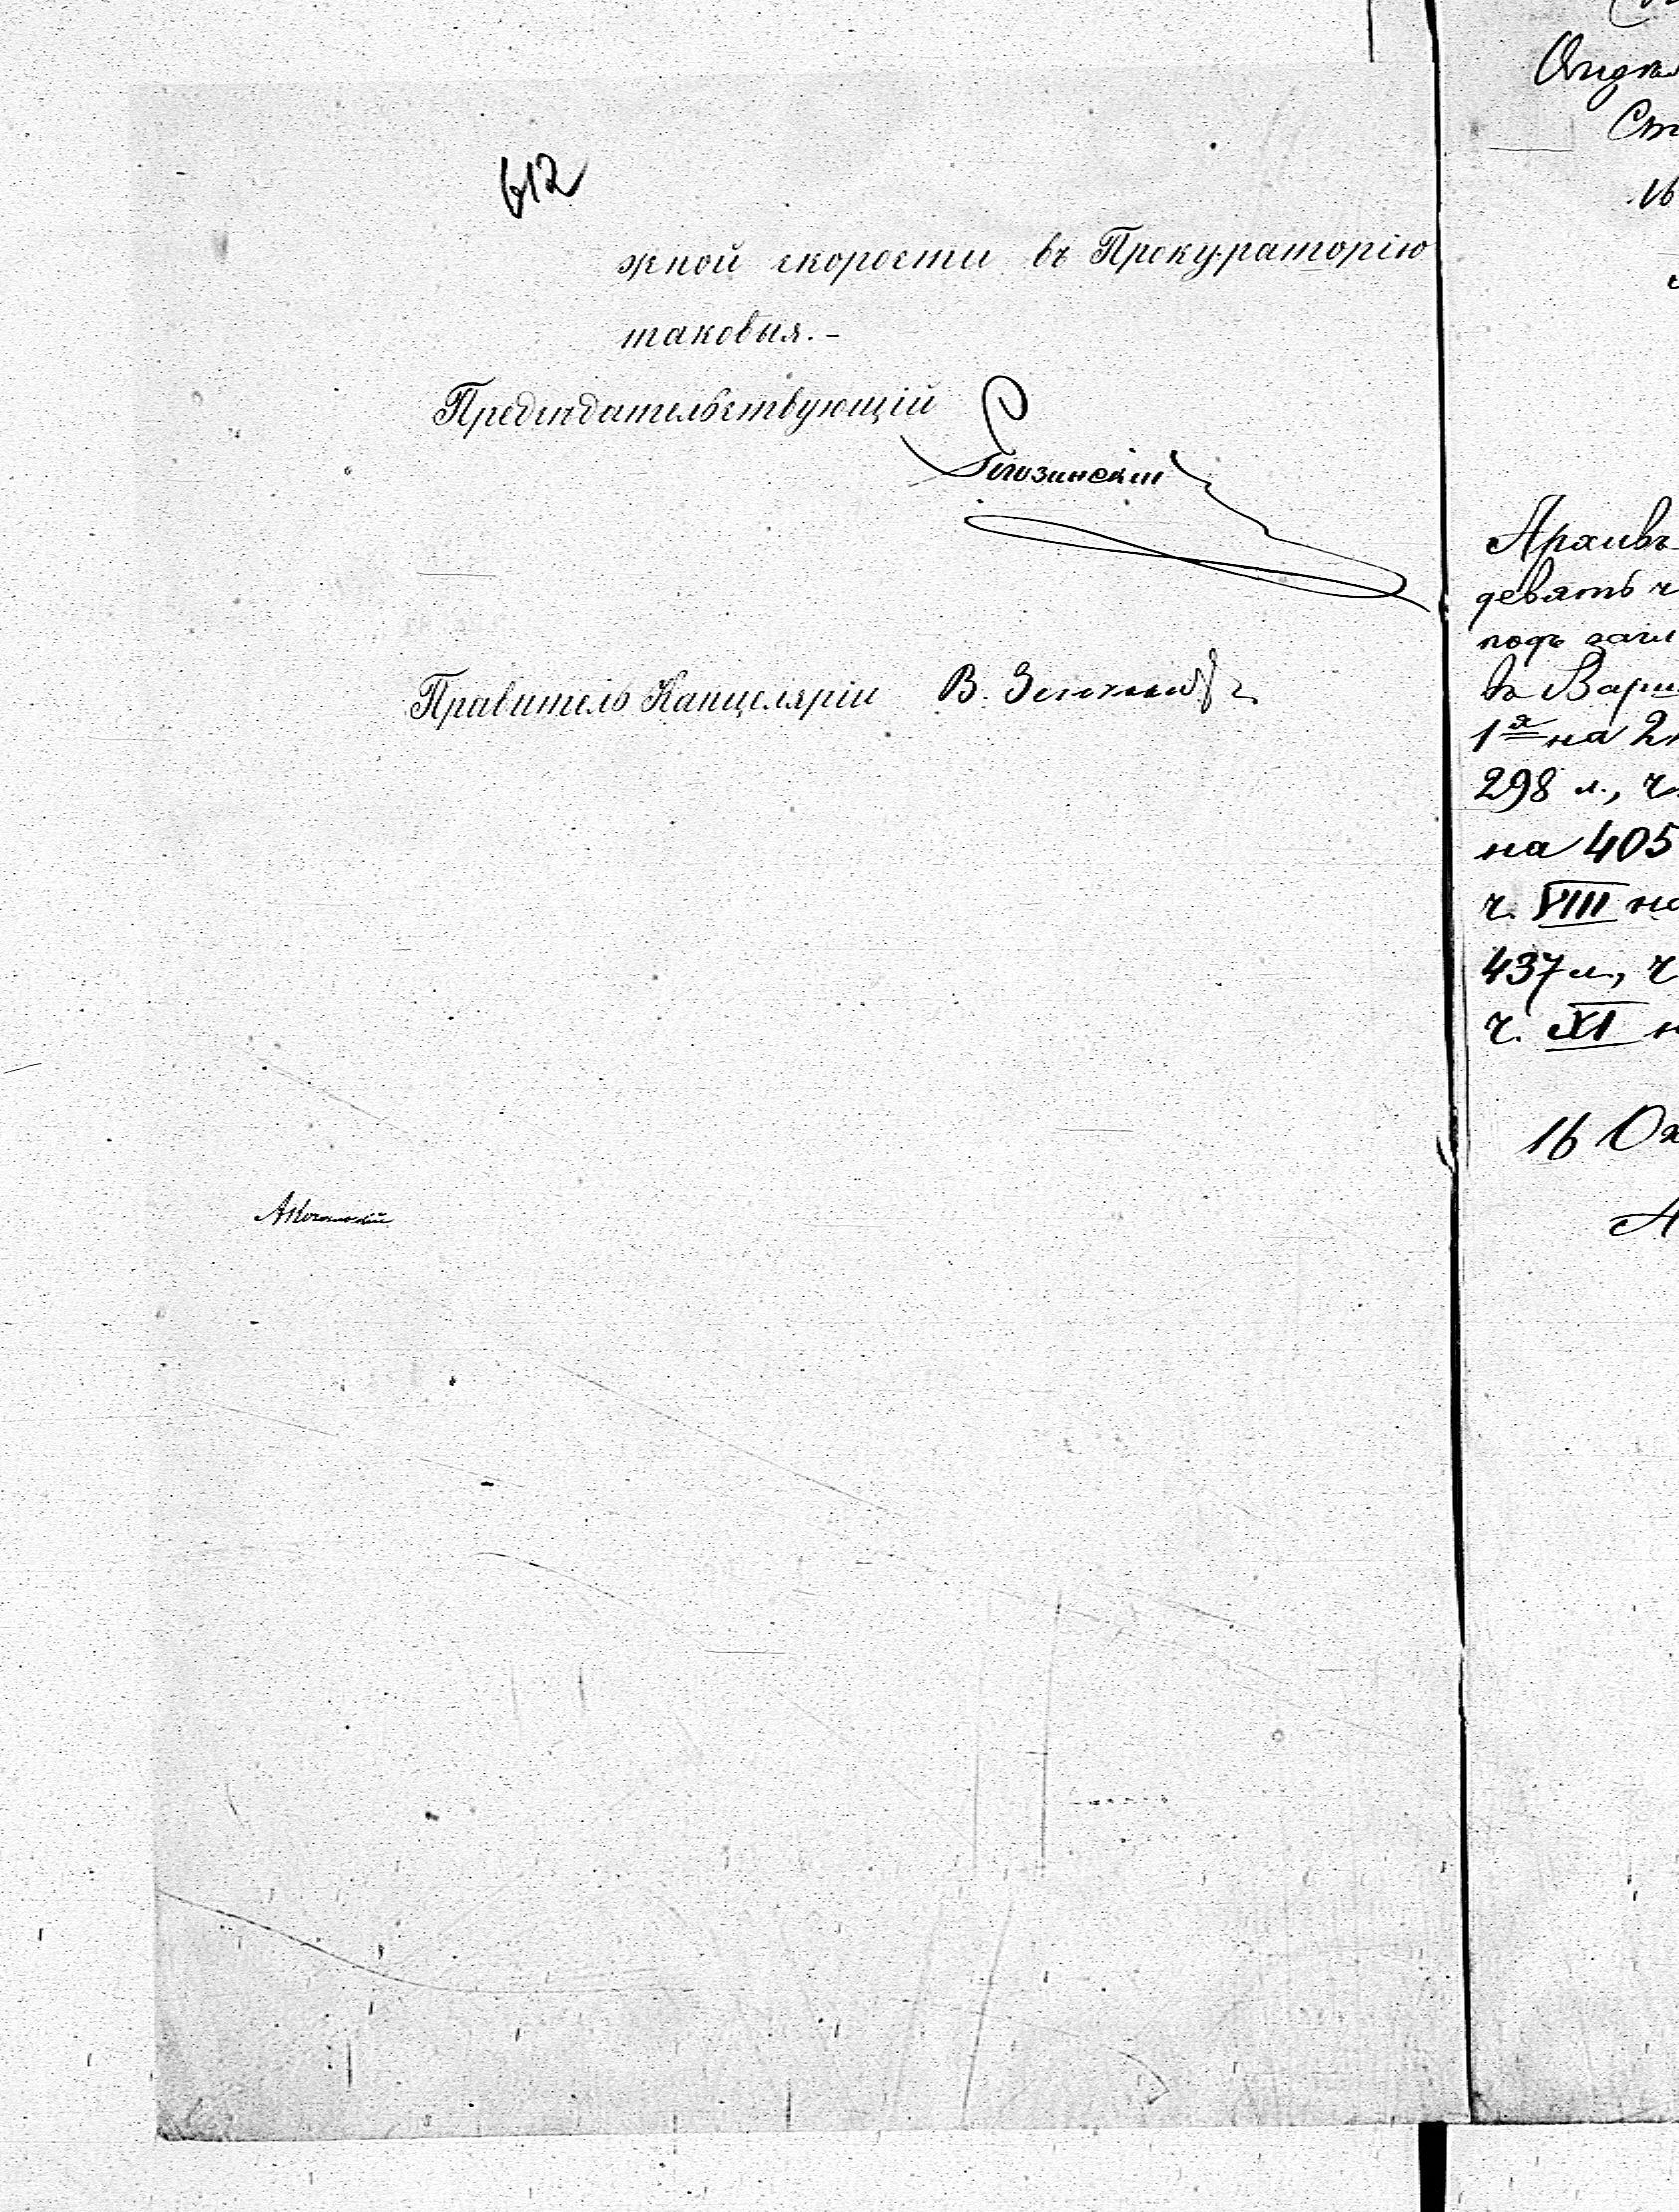 612
жной скорости въ Прокураторію
таковыя.-
Предсѣдательствующій
Рогозинскій
Правитель Канцеляріи В.
Архивъ
девять ч
подъ загл
въ Варш
1я на 2
298 л., ч
на 405
ч. VIII на
437 л., ч
ч. XI н
16 Ок
А